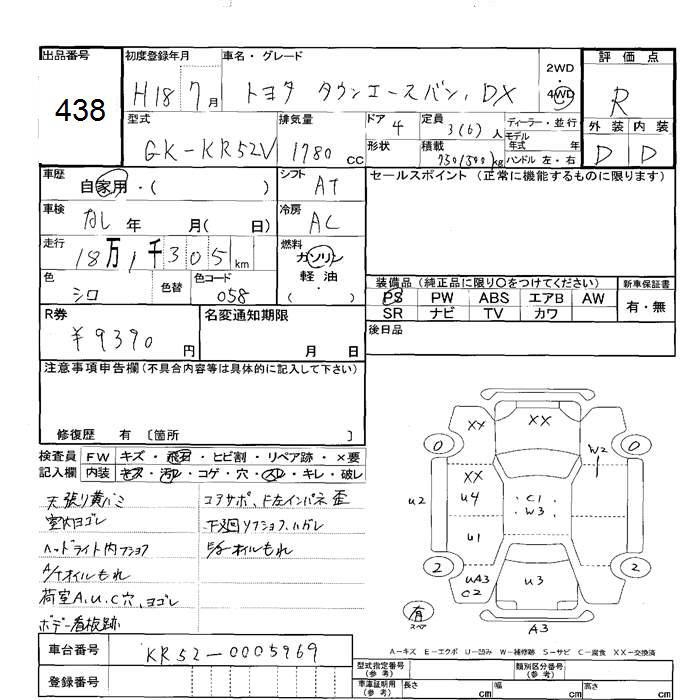 出品番号
438
初度登録年月
H18 7月
車名・グレード
トヨタ タウンエースバン. DX
2WD
・
4WD
評価点
R
外装 内装
D D
型式
GK-KR52V
排気量
1780 cc
ドア 4
形状
定員 3(6)人
積載 750(500)kg
ディーラー・並行
モデル
年式 年
ハンドル 左・右
車歴
自家用・( )
シフト AT
車検
なし 年 月( 日)
冷房 AC
走行
18万1千305km
燃料
ガソリン
軽・油
( )
色
シロ
色替
色コード
058
セールスポイント (正常に機能するものに限ります)
装備品 (純正品に限り〇をつけてください)
PS PW ABS エアB AW
SR ナビ TV カワ
新車保証書
有・無
後日品
R券
¥9390円
名変通知期限
月 日
注意事項申告欄(不具合内容等は具体的に記入して下さい)
修復歴 有 〔箇所 〕
検査員 FW キズ・飛石・ヒビ割・リペア跡・×要
記入欄 内装 キズ・汚れ・コゲ・穴・スレ・キレ・破レ
天張り黄バミ
室内ヨゴレ
ヘッドライト内フショク
A/Tオイルもれ
荷室A.U.C穴、ヨゴレ
ボデー看板跡
コアサポ、F左インパネ歪
下廻りフショク、ハガレ
E/gオイルもれ
XX
XX
0
0
W2
XX
U4
U2
C1
W3
U1
2
2
UA3
C2
U3
有
スペア
A3
A-キズ E-エクボ U-凹み W-補修跡 S-サビ C-腐食 XX-交換済
車台番号
KR52-0005969
登録番号
型式指定番号
(参考)
類別区分番号
(参考)
車庫証明用
(参考)
長さ cm
幅 cm
高さ cm